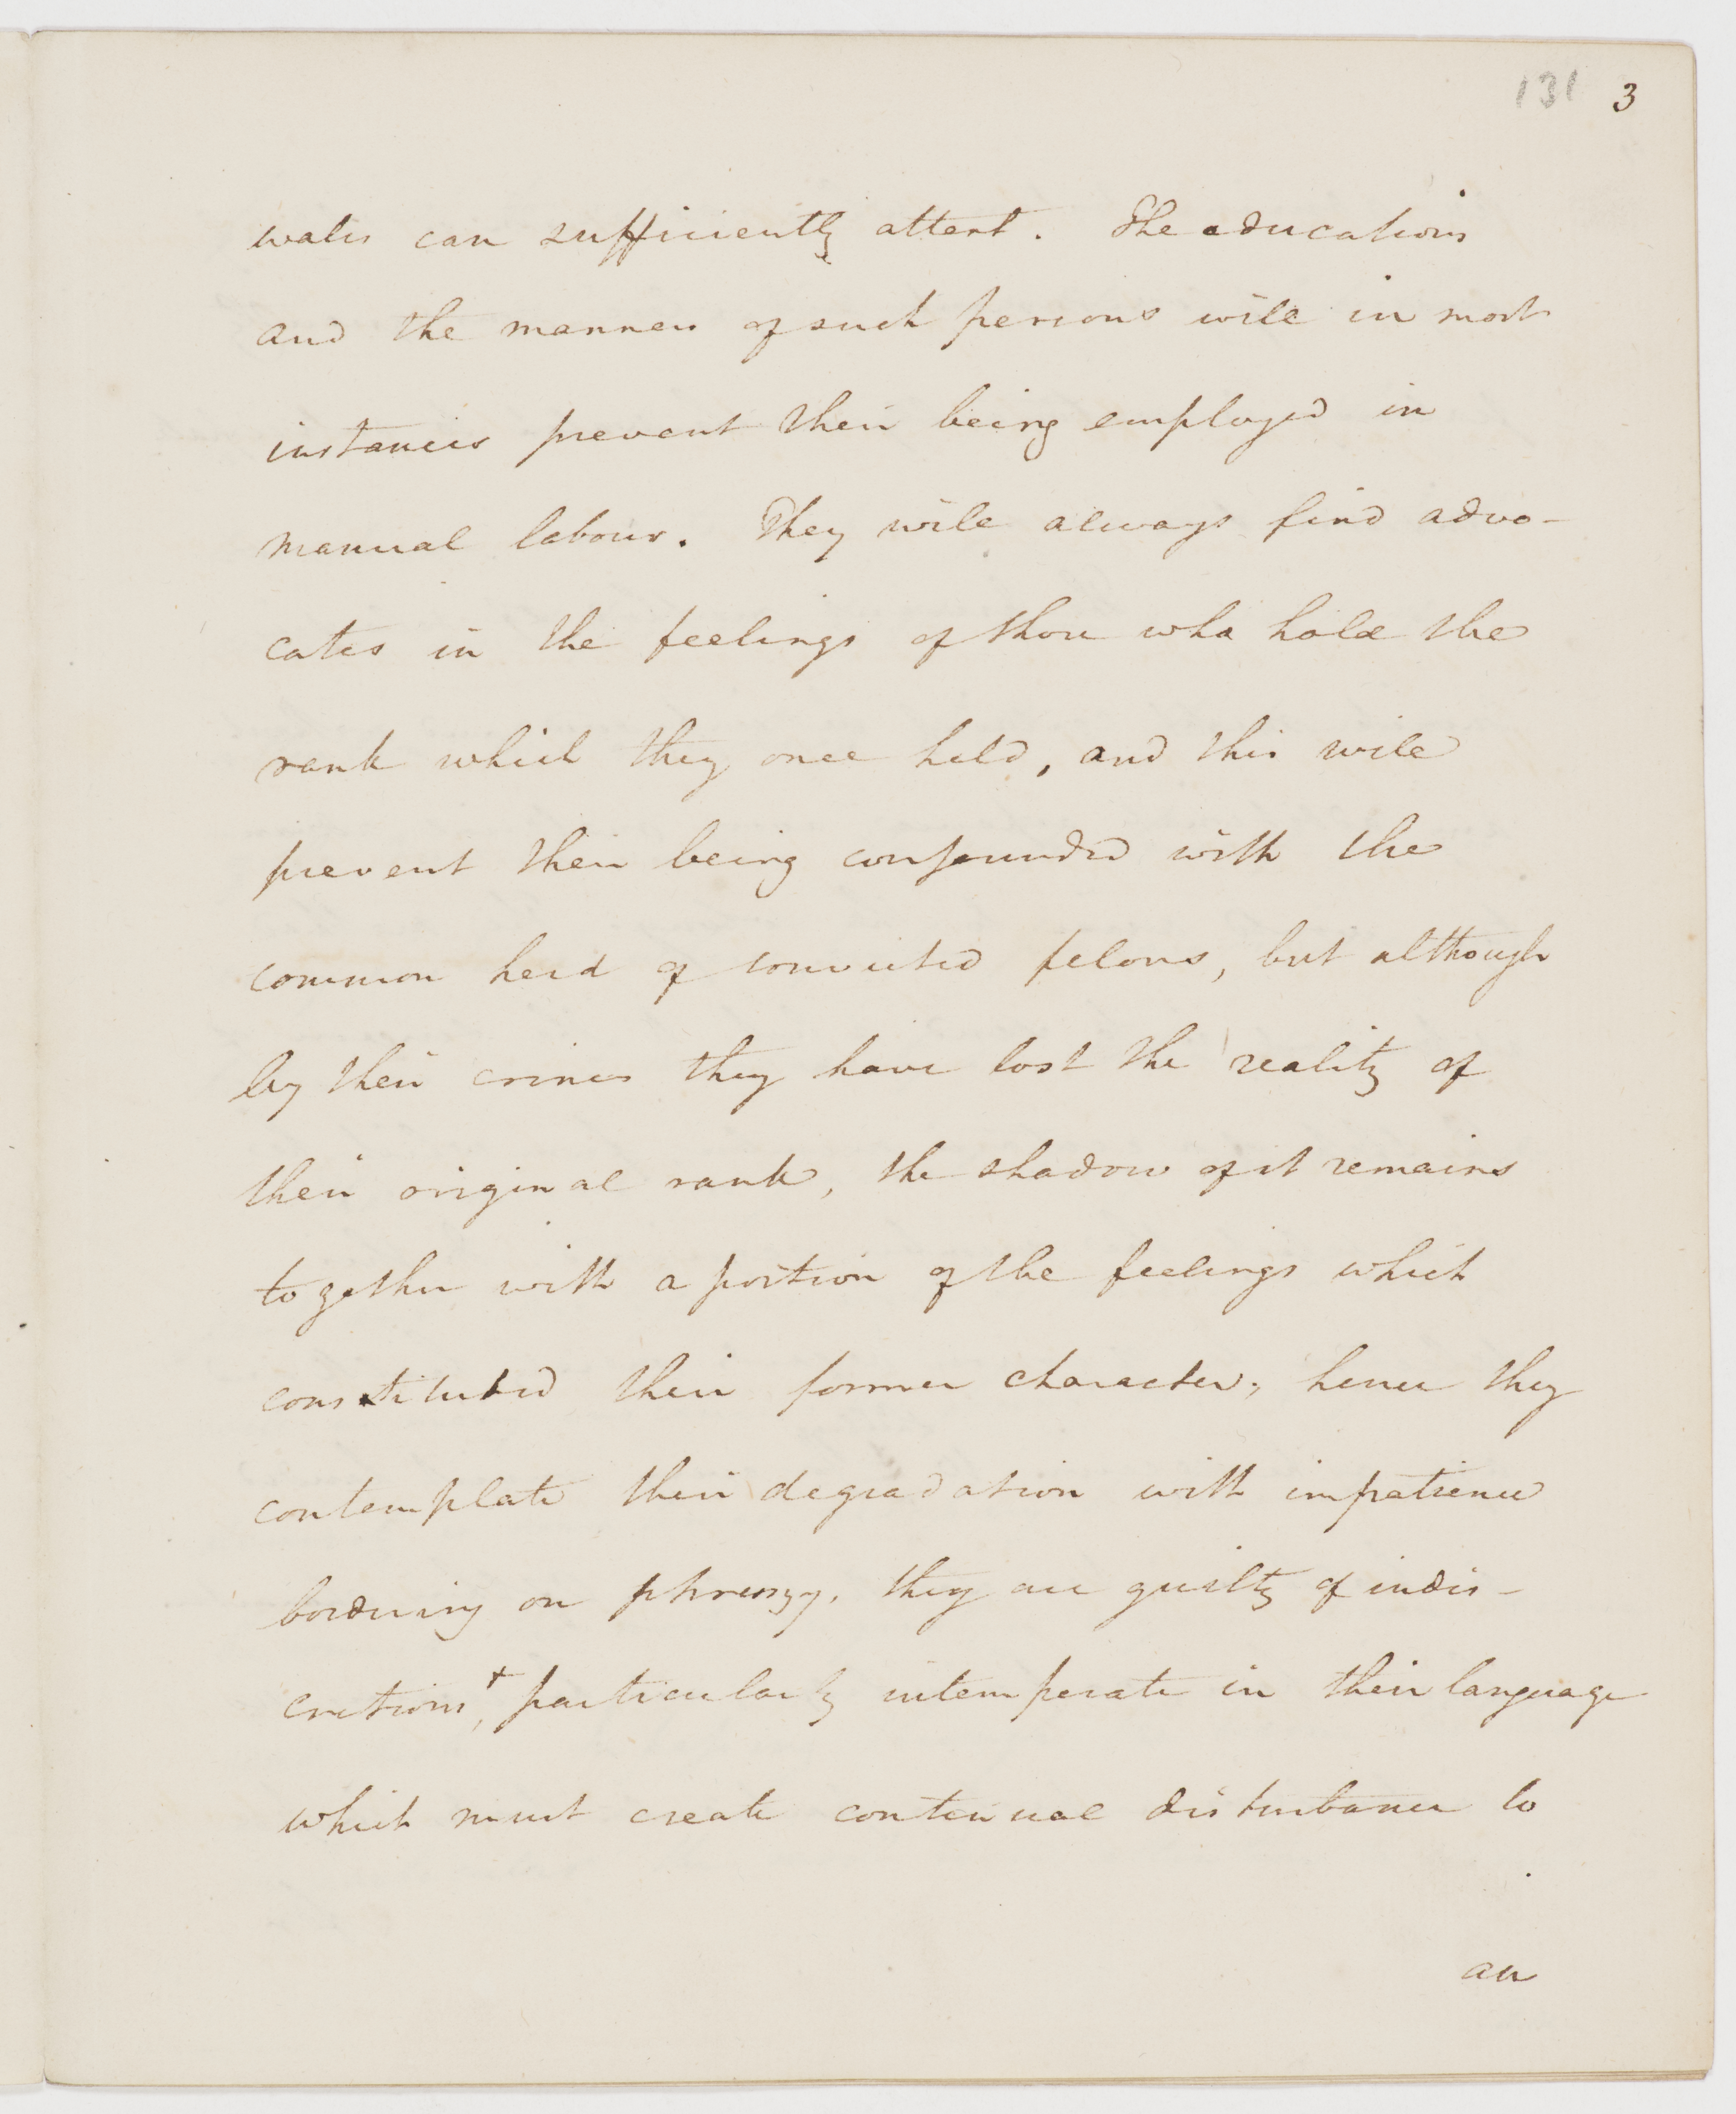 131 3
wales can sufficiently attest. The educations
and the manners of such persons will in most
instances prevent their being employed in
manual labour. They will always find advo-
cates in the feelings of those who hold the
rank which they once held, and this will
prevent their being confounded with the
common herd of convicted felons, but although
by their crimes they have lost the reality of
their original rank, the shadow of it remains
together with a portion of the feelings which
constituted their former character; hence they
contemplate their degradation with impatience
bordering on phrenzy. they are guilty of indis-
cretions,+ particularly intemperate in their language
which must create continual disturbance to
an